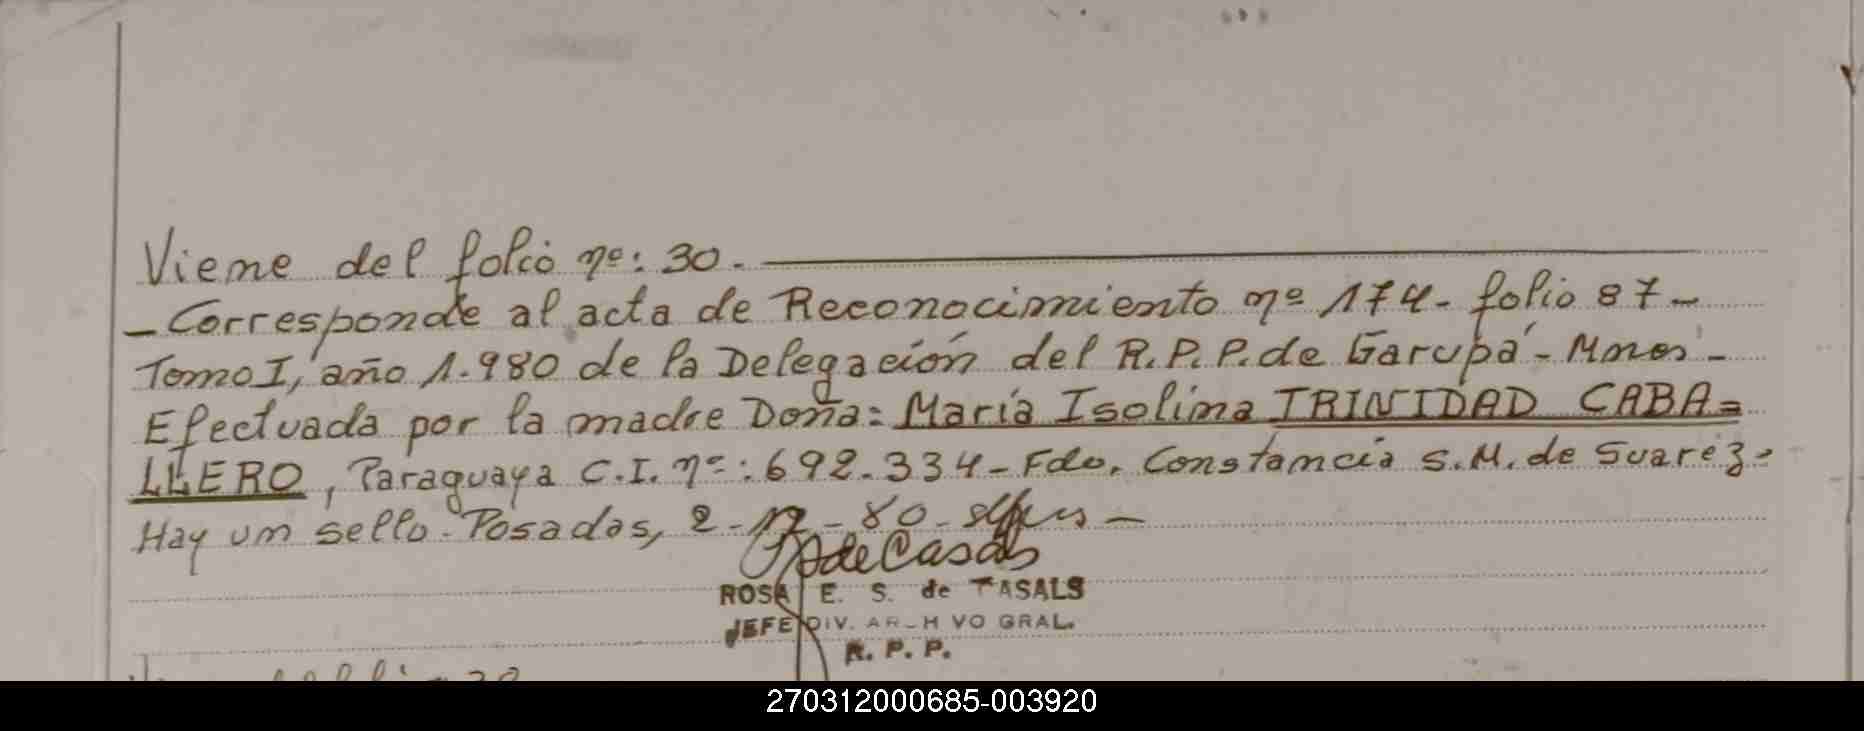 Viene del folio nº: 30.
- Corresponde al acta de Reconocimiento nº 174- folio 87-
Tomo I, año 1.980 de la Delegación del R.P.P. de Garupá - Mnes -
Efectuada por la madre Doña: María Isolina TRINIDAD CABA=
LLERO, Paraguaya C.I. nº: 692.334- Fdo. Constancia S.M. de Suarez-
Hay un sello- Posadas, 2- 12 - 80-
de Casals
ROSA E. S. de CASALS
JEFE DIV. AR_H VO GRAL.
R. P. P.
270312000685-003920